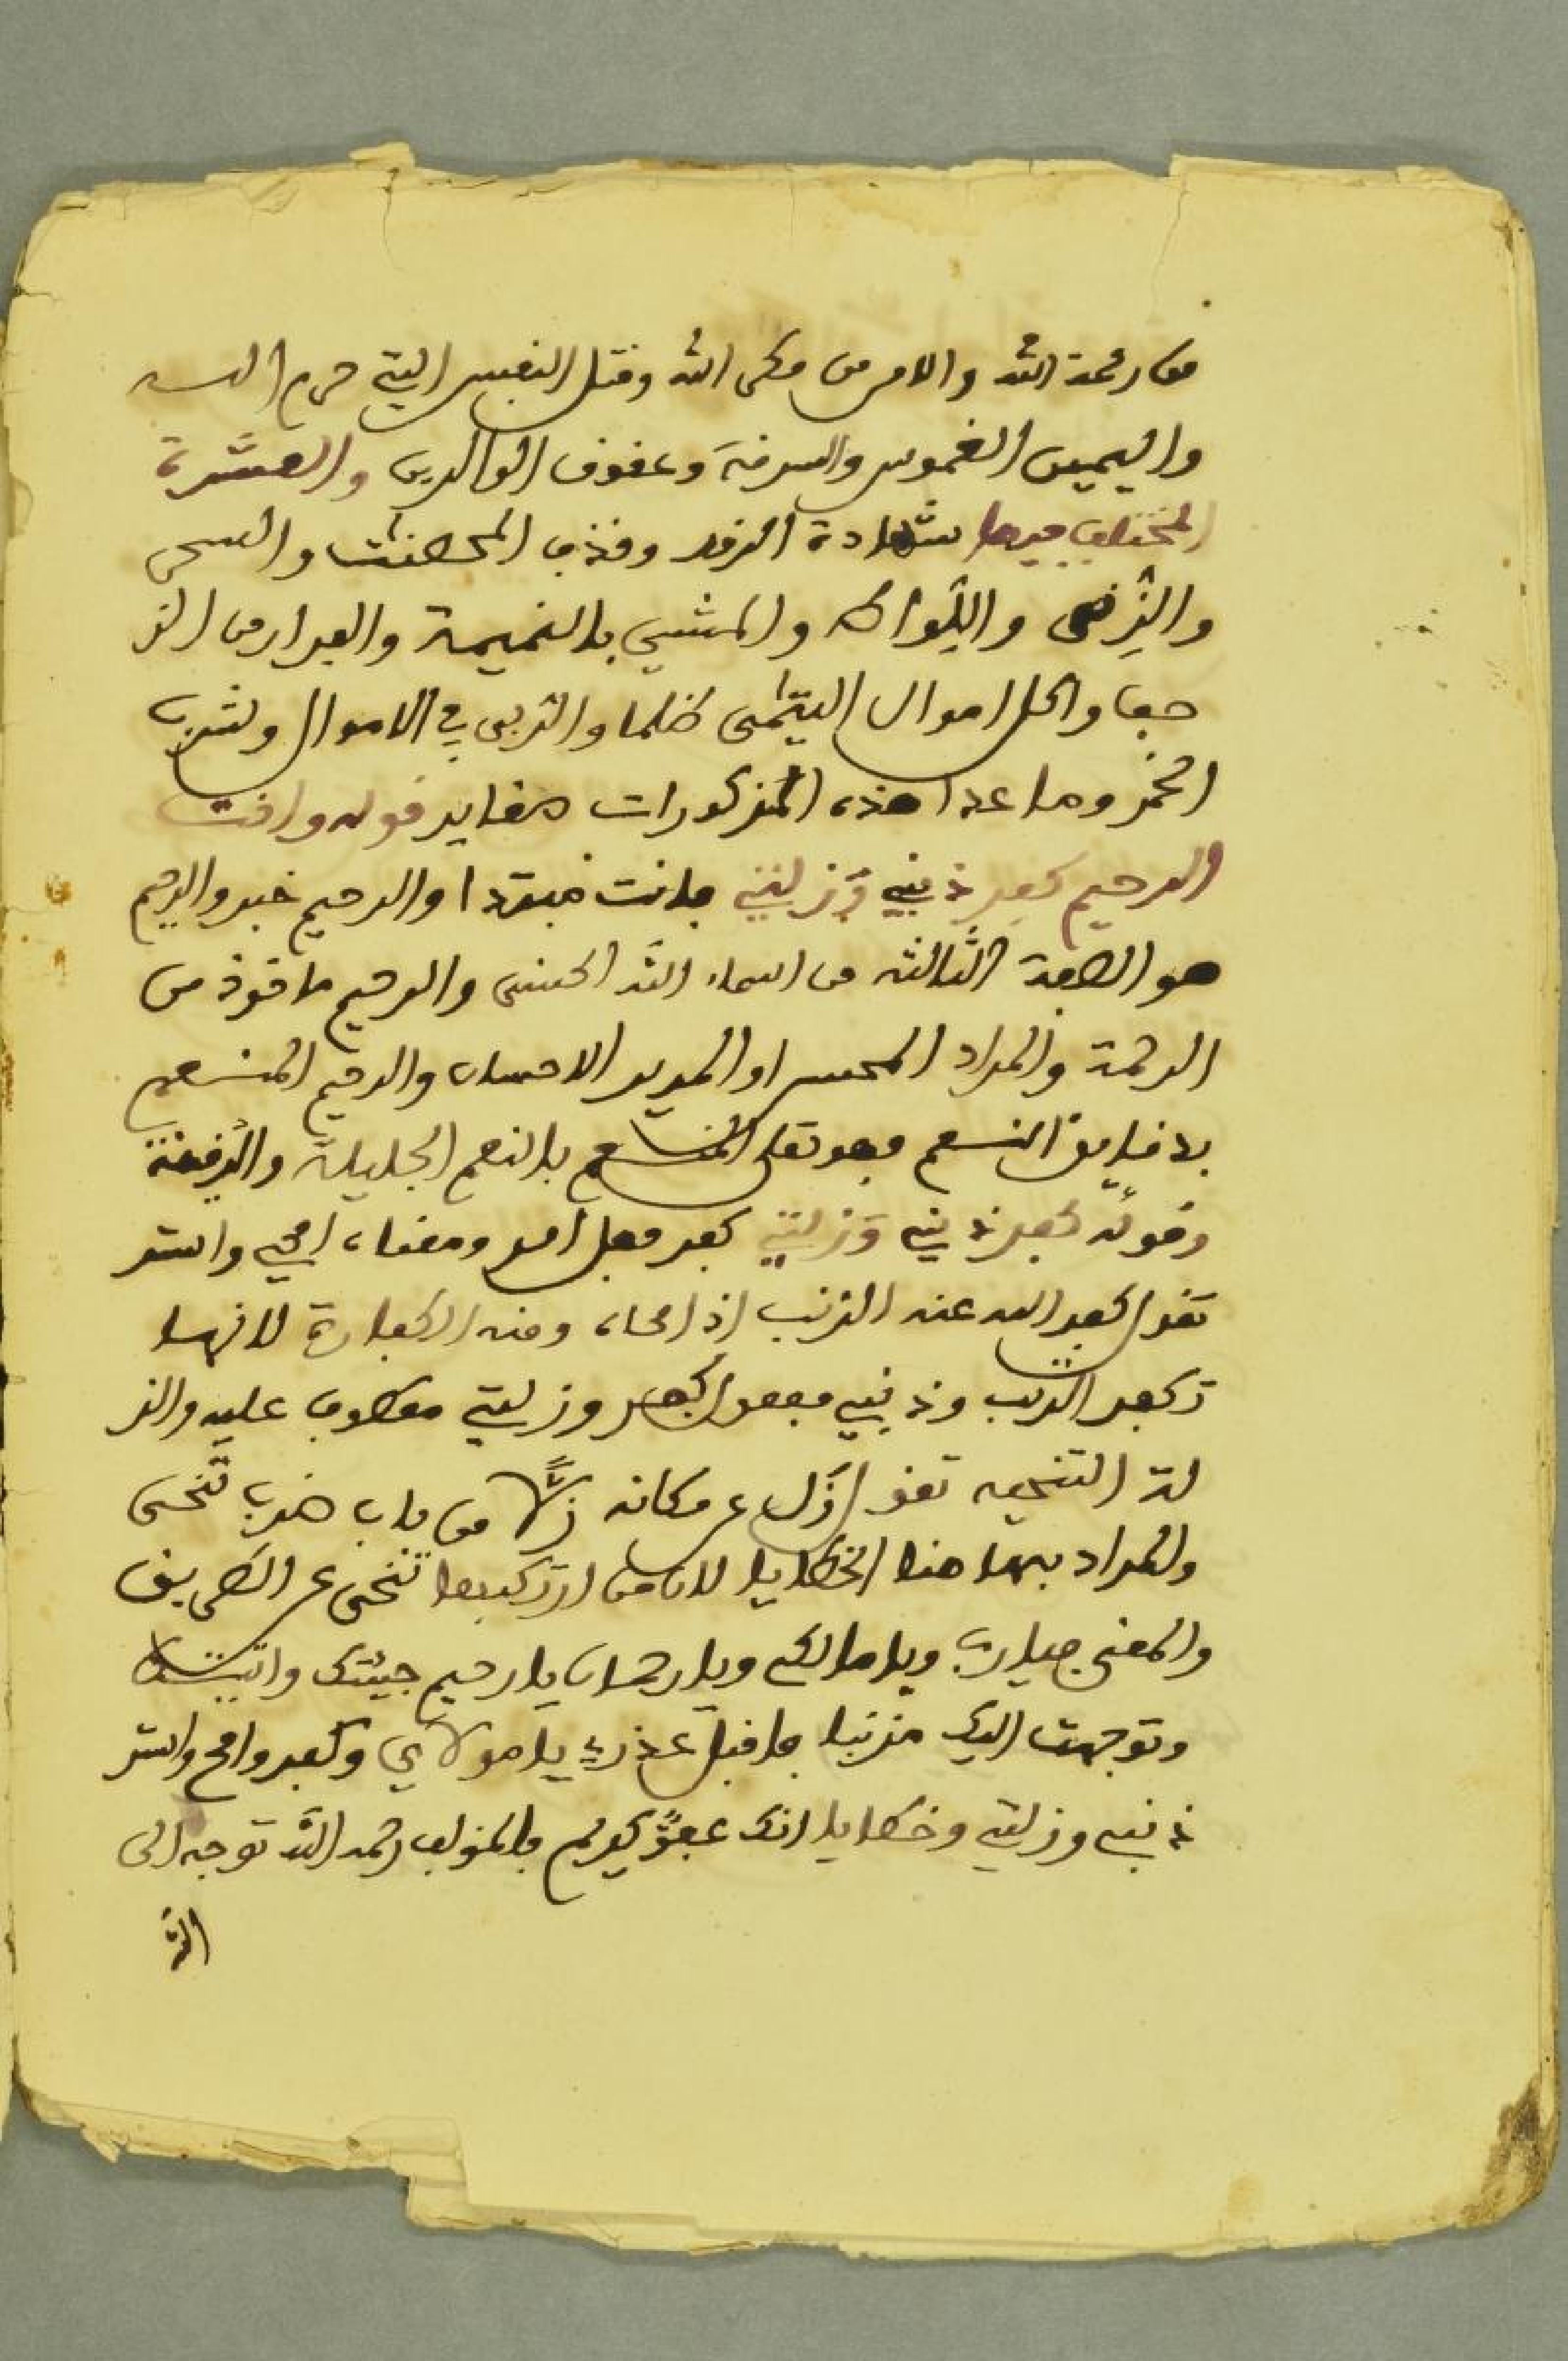 من رحمة الله والامن من مكر الله وقتل النفس التي حرم الله
واليمين الغموس والسرقة وعقوق الوالدين والعشرة
المختلف فيها شهادة الزور وقذف المحصنت والسحر
والزنى واللواط والمشي بالنميمة والفرار من الز
حف واكل اموال اليتمى ظلما والربى في الاموال وشرب
الخمر وما عدا هذه المذكورات صغاير قوله وانت
الرحيم كفر ذنبي وزلتي فانت مبتدا والرحيم خبر والرحيم
هو الصفة الثالثة من اسماء الله الحسنى والرحيم ماخوذ من
الرحمة والمراد المحسن او المريد الاحسان والرحيم المنعم
بدقايق النعم فهو تعلى المنعم بالنعم الجليلة والدقيقة
وقوله كفر ذنبي وزلتي كفر فعل امر ومعناه امحي واستر
تقول كفر الله عنه الذنب اذا محاه ومنه الكفارة لانها
تكفر الذنب وذنبي مفعول كفر وزلتي معطوف عليه والز
لة التنحيه تقول زل عن مكانه زلا من باب ضرب تنحى
والمراد بها هنا الخطايا لان من ارتكبها تنحى عن الطريق
والمعنى فيارب ويا مالك ويا رحمان يا رحيم جيئتك واتيتك
وتوجهت اليك مذنبا فاقبل عذري يا مولاي وكفر وامح واستر
ذنبي وزلتي وخطايا انك عفو كريم فالمؤلف رحمه الله توجه الى
الله